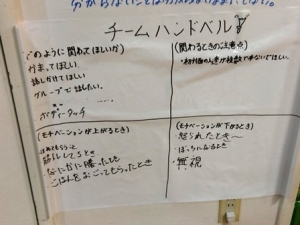 チームハンドベル
(どのように関わってほしいか)
かまってほしい
話しかけてほしい
グループで話したい。
ボディータッチ
(関わるときの注意点)
・初対面の人が複数で来ないでほしい。
(モチベーションが上がるとき)
ほめてもらう
筋トレしてるとき
なにかに勝ったとき
ごはんをおごってもらったとき
(モチベーションが下がるとき)
・怒られたとき〜
・ぼっちになるとき
・無視